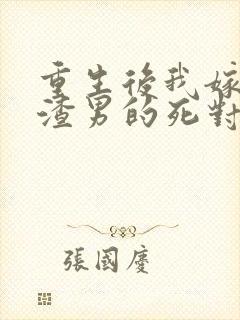 重生後我嫁
渣男的死對
張國慶